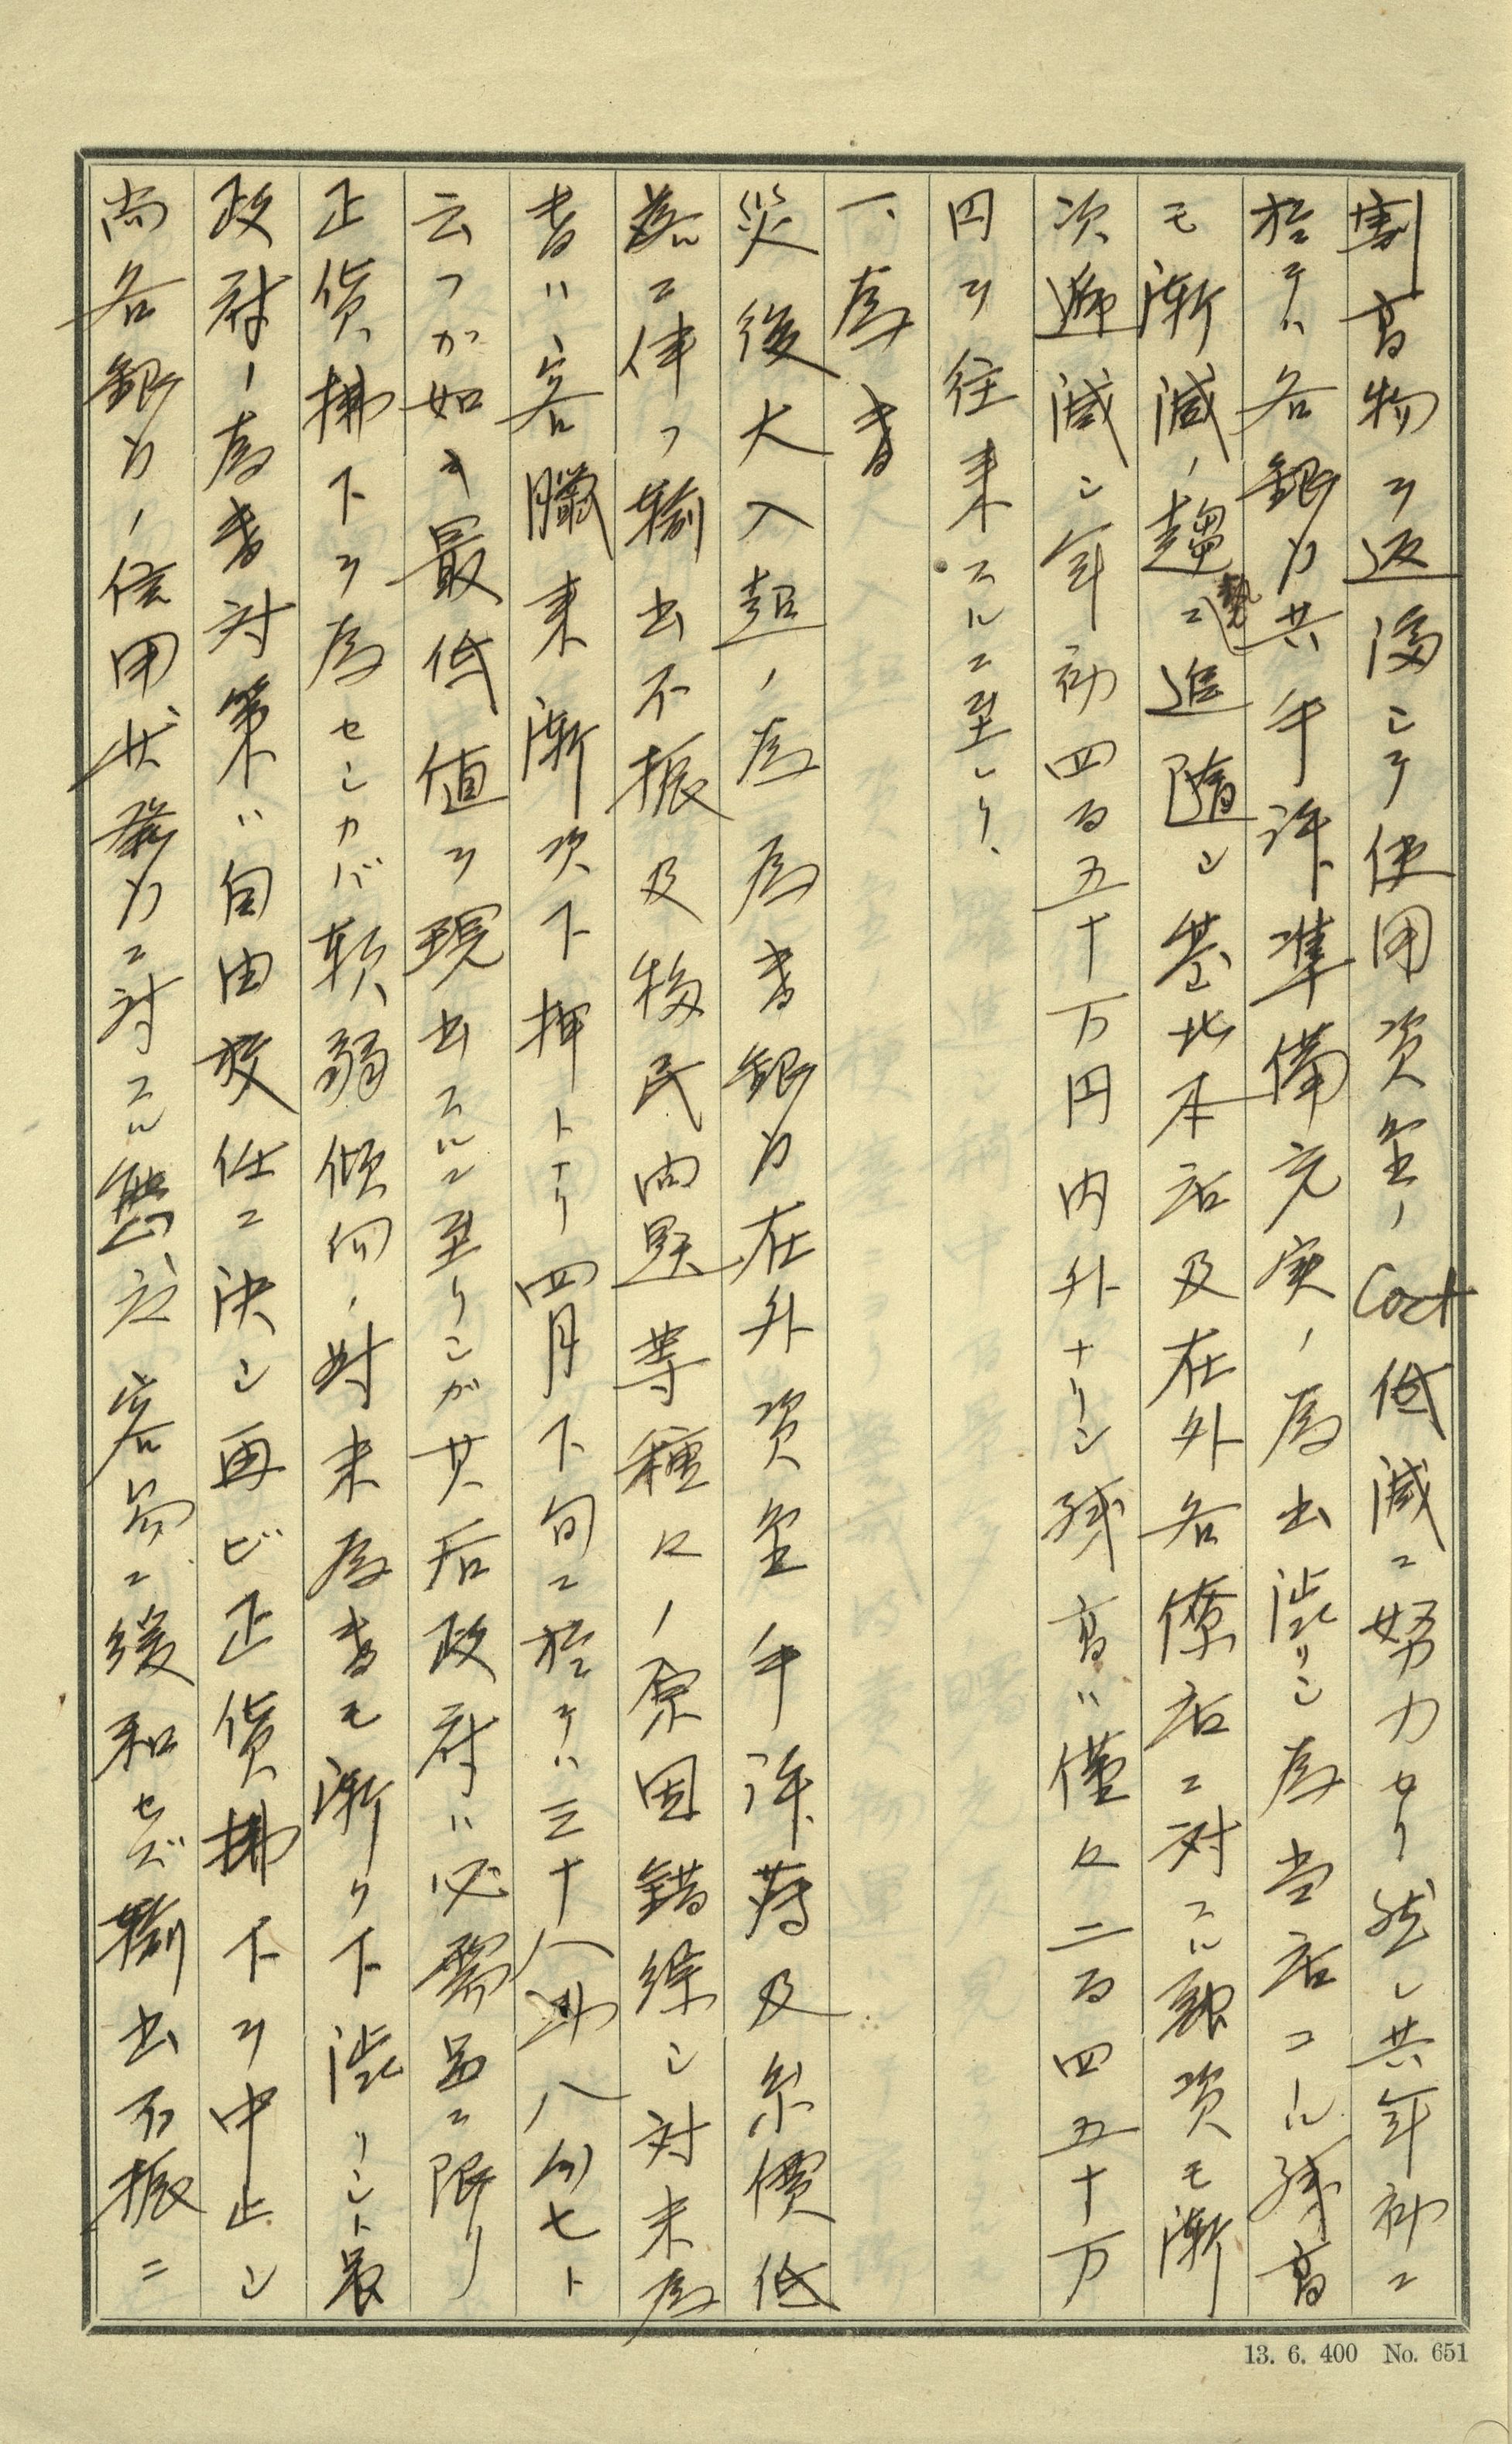 割高物ヲ返済シテ使用資金ノCost低減ニ努力セリ然レ共年初ニ
於テハ各銀行共手許準備充実ノ為出渋リシ為当店コール残高
モ漸減ノ趨勢ニ追随シ其比本店及在外各僚店ニ対スル融資モ漸
次逓減シ年初四百五十万円内外ナリシ残高ハ僅々二百四五十万
円ヲ往来スルニ至レリ、
一、為替
災後大入超ノ為為替銀行在外資金手許薄及糸價低
落ニ伴フ輸出不振及移民問題等種々ノ原因錯綜シ対米為
替ハ客臘来漸次下押トナリ四月下旬ニ於テハ三十八弗八分七ト
云フが如キ最低値ヲ現出スルニ至リシガ其后政府ハ必需品ニ限リ
正貨拂下ヲ為セシカバ軟弱傾向ノ対米為替モ漸ク下渋リシト最
政府ノ為替対策ハ自由放任ニ決シ再ビ正貨拂下ヲ中止シ
尚各銀行ノ信用状発行ニ対スル態度容易ニ緩和セズ輸出不振ニ
13. 6. 400 No. 651